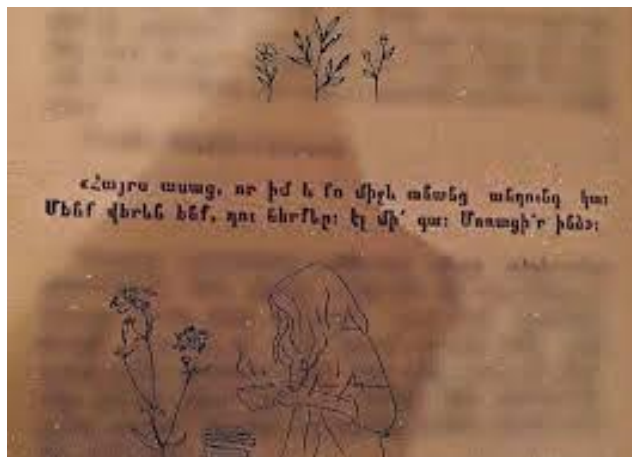 «Հայրս ասաց, որ իմ և քո միջև անանց անդունդ կա։
Մենք վերևն ենք, դու ներքևը։ Էլ մի՛ գա։ Մոռացի՛ր ինձ»։